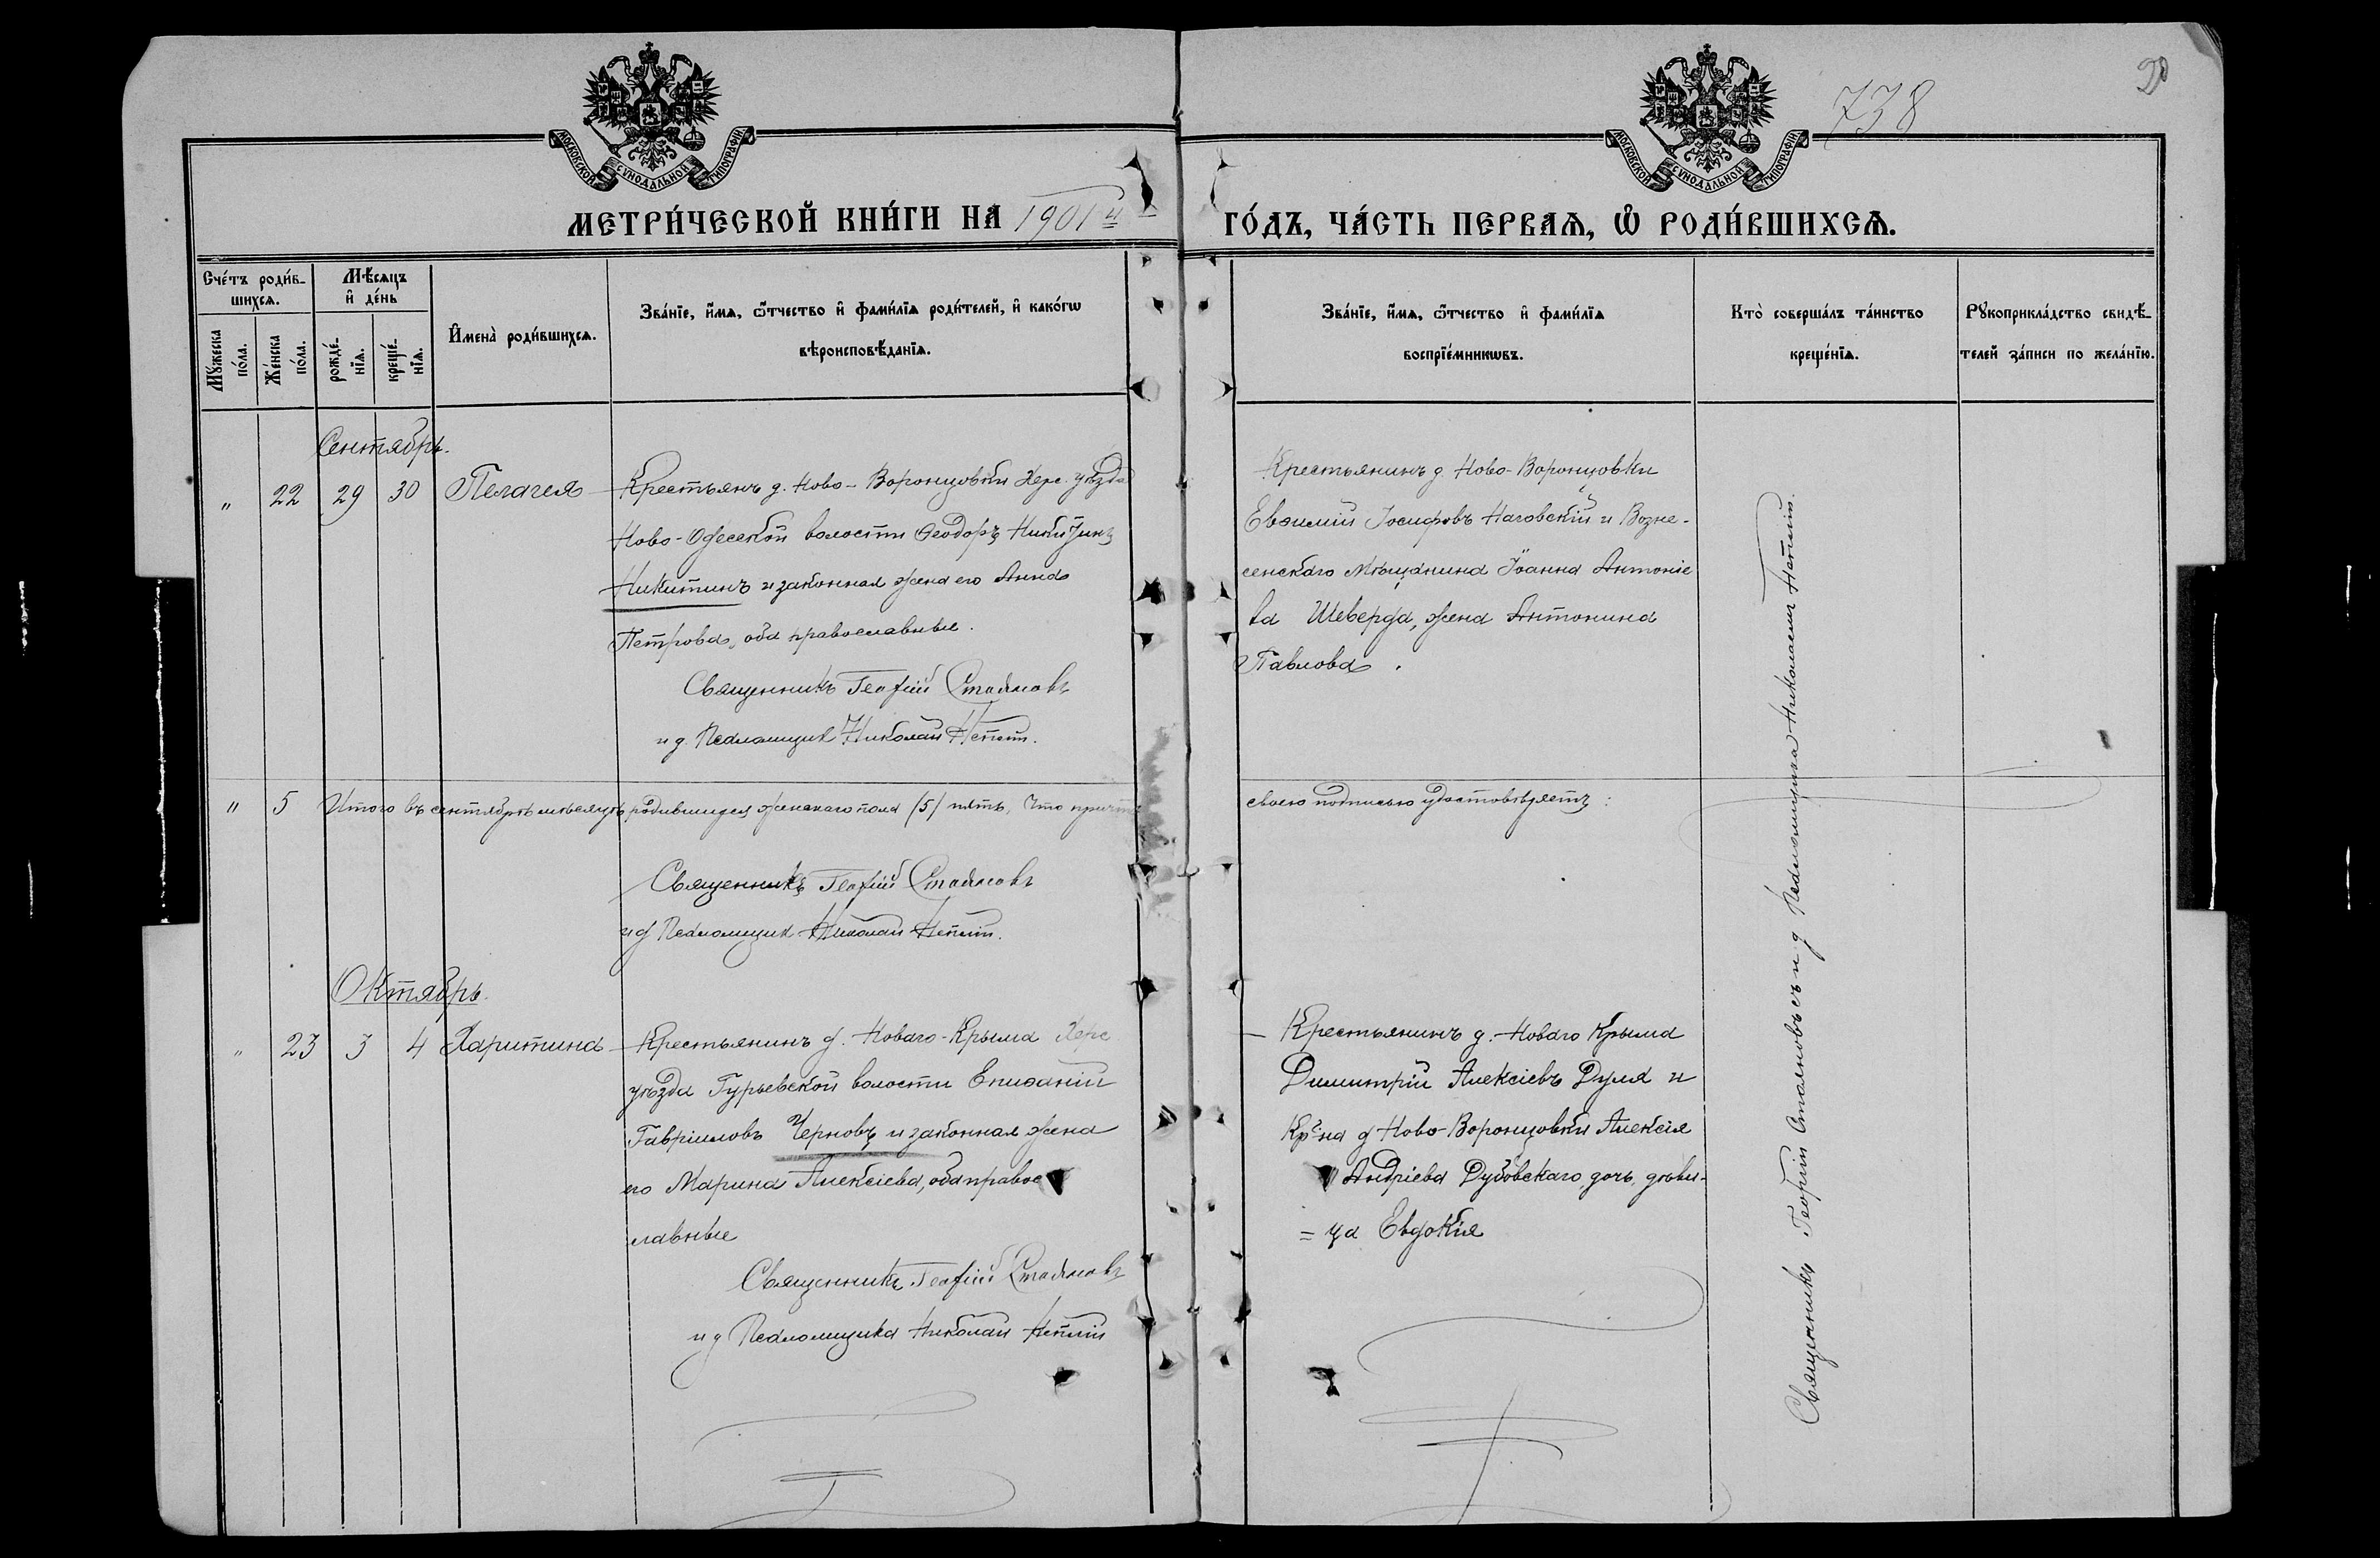 738
20
МОСКОВСКОЙ СУНОДАЛЬНОЙ ТИПОГРАФІИ
МОСКОВСКОЙ СУНОДАЛЬНОЙ ТИПОГРАФІИ
МЕТРИ́ЧЕСКОЙ КНИ́ГИ НА 1901й
ГО́ДЪ, ЧА́СТЬ ПЕРВАѦ, Ѡ РОДИ́ВШИХСѦ.
Сче́тъ роди́в-
шихсѧ.
Мꙋ́жеска
по́ла.
Же́нска
по́ла.
Мѣ́сѧцъ
и҆ де́нь
рожде́-
нїѧ.
креще́-
нїѧ.
И҆мена̀ роди́вшихсѧ.
Зва́нїе, и҆́мѧ, ѻ҆́тчество и҆ фами́лїѧ роди́телей, и҆ како́гѡ
вѣроисповѣ́данїѧ.
Зва́нїе, и҆́мѧ, ѻ҆́тчество и҆ фами́лїѧ
воспрїе́мникѡвъ.
Кто̀ соверша́лъ та́инство
креще́нїѧ.
Рꙋкоприкла́дство свидѣ́-
телей за́писи по жела́нїю.
Сентябрь.
" 22 29 30 Пелагея
Крестьянъ д. Ново-Воронцовки Херс. уѣзда
Ново-Одесской волости Ѳеодоръ Никитинъ
Никитинъ и законная жена его Анна
Петрова, оба православные.
Священникъ Георгій Стаяновъ
и д. Псаломщик Николай
Крестьянинъ д. Ново-Воронцовки
Евѳимій Іосифовъ Наговскій и Возне-
сенскаго мѣщанина Іоанна Антоніе
ва Шеверда, жена Антонина
Павлова.
" 5 Итого въ сентябрѣ мѣсяцѣ родившихся женскаго пола /5/ пять, что причтъ
своею подписью удостовѣряетъ:
Священникъ Георгій Стаяновъ
и д Псаломщик Николай
Октябрь.
" 23 3 4 Харитина
Крестьянинъ д. Новаго-Крыма Херс
уѣзда Гурьевской волости Епифаній
Гавріиловъ Черновъ и законная жена
его Марина Алексіева, оба правос
лавные
Священникъ Георгій Стаяновъ
и д Псаломщика Николай
Крестьянинъ д. Новаго Крыма
Димитрій Алексіевъ Дуля и
Кр-на д Ново-Воронцовки Алексія
Андріева Дубовскаго, дочь, дѣви-
=ца Евдокія
Священникъ Георгій Стаяновъ и д Псаломщика Николаем